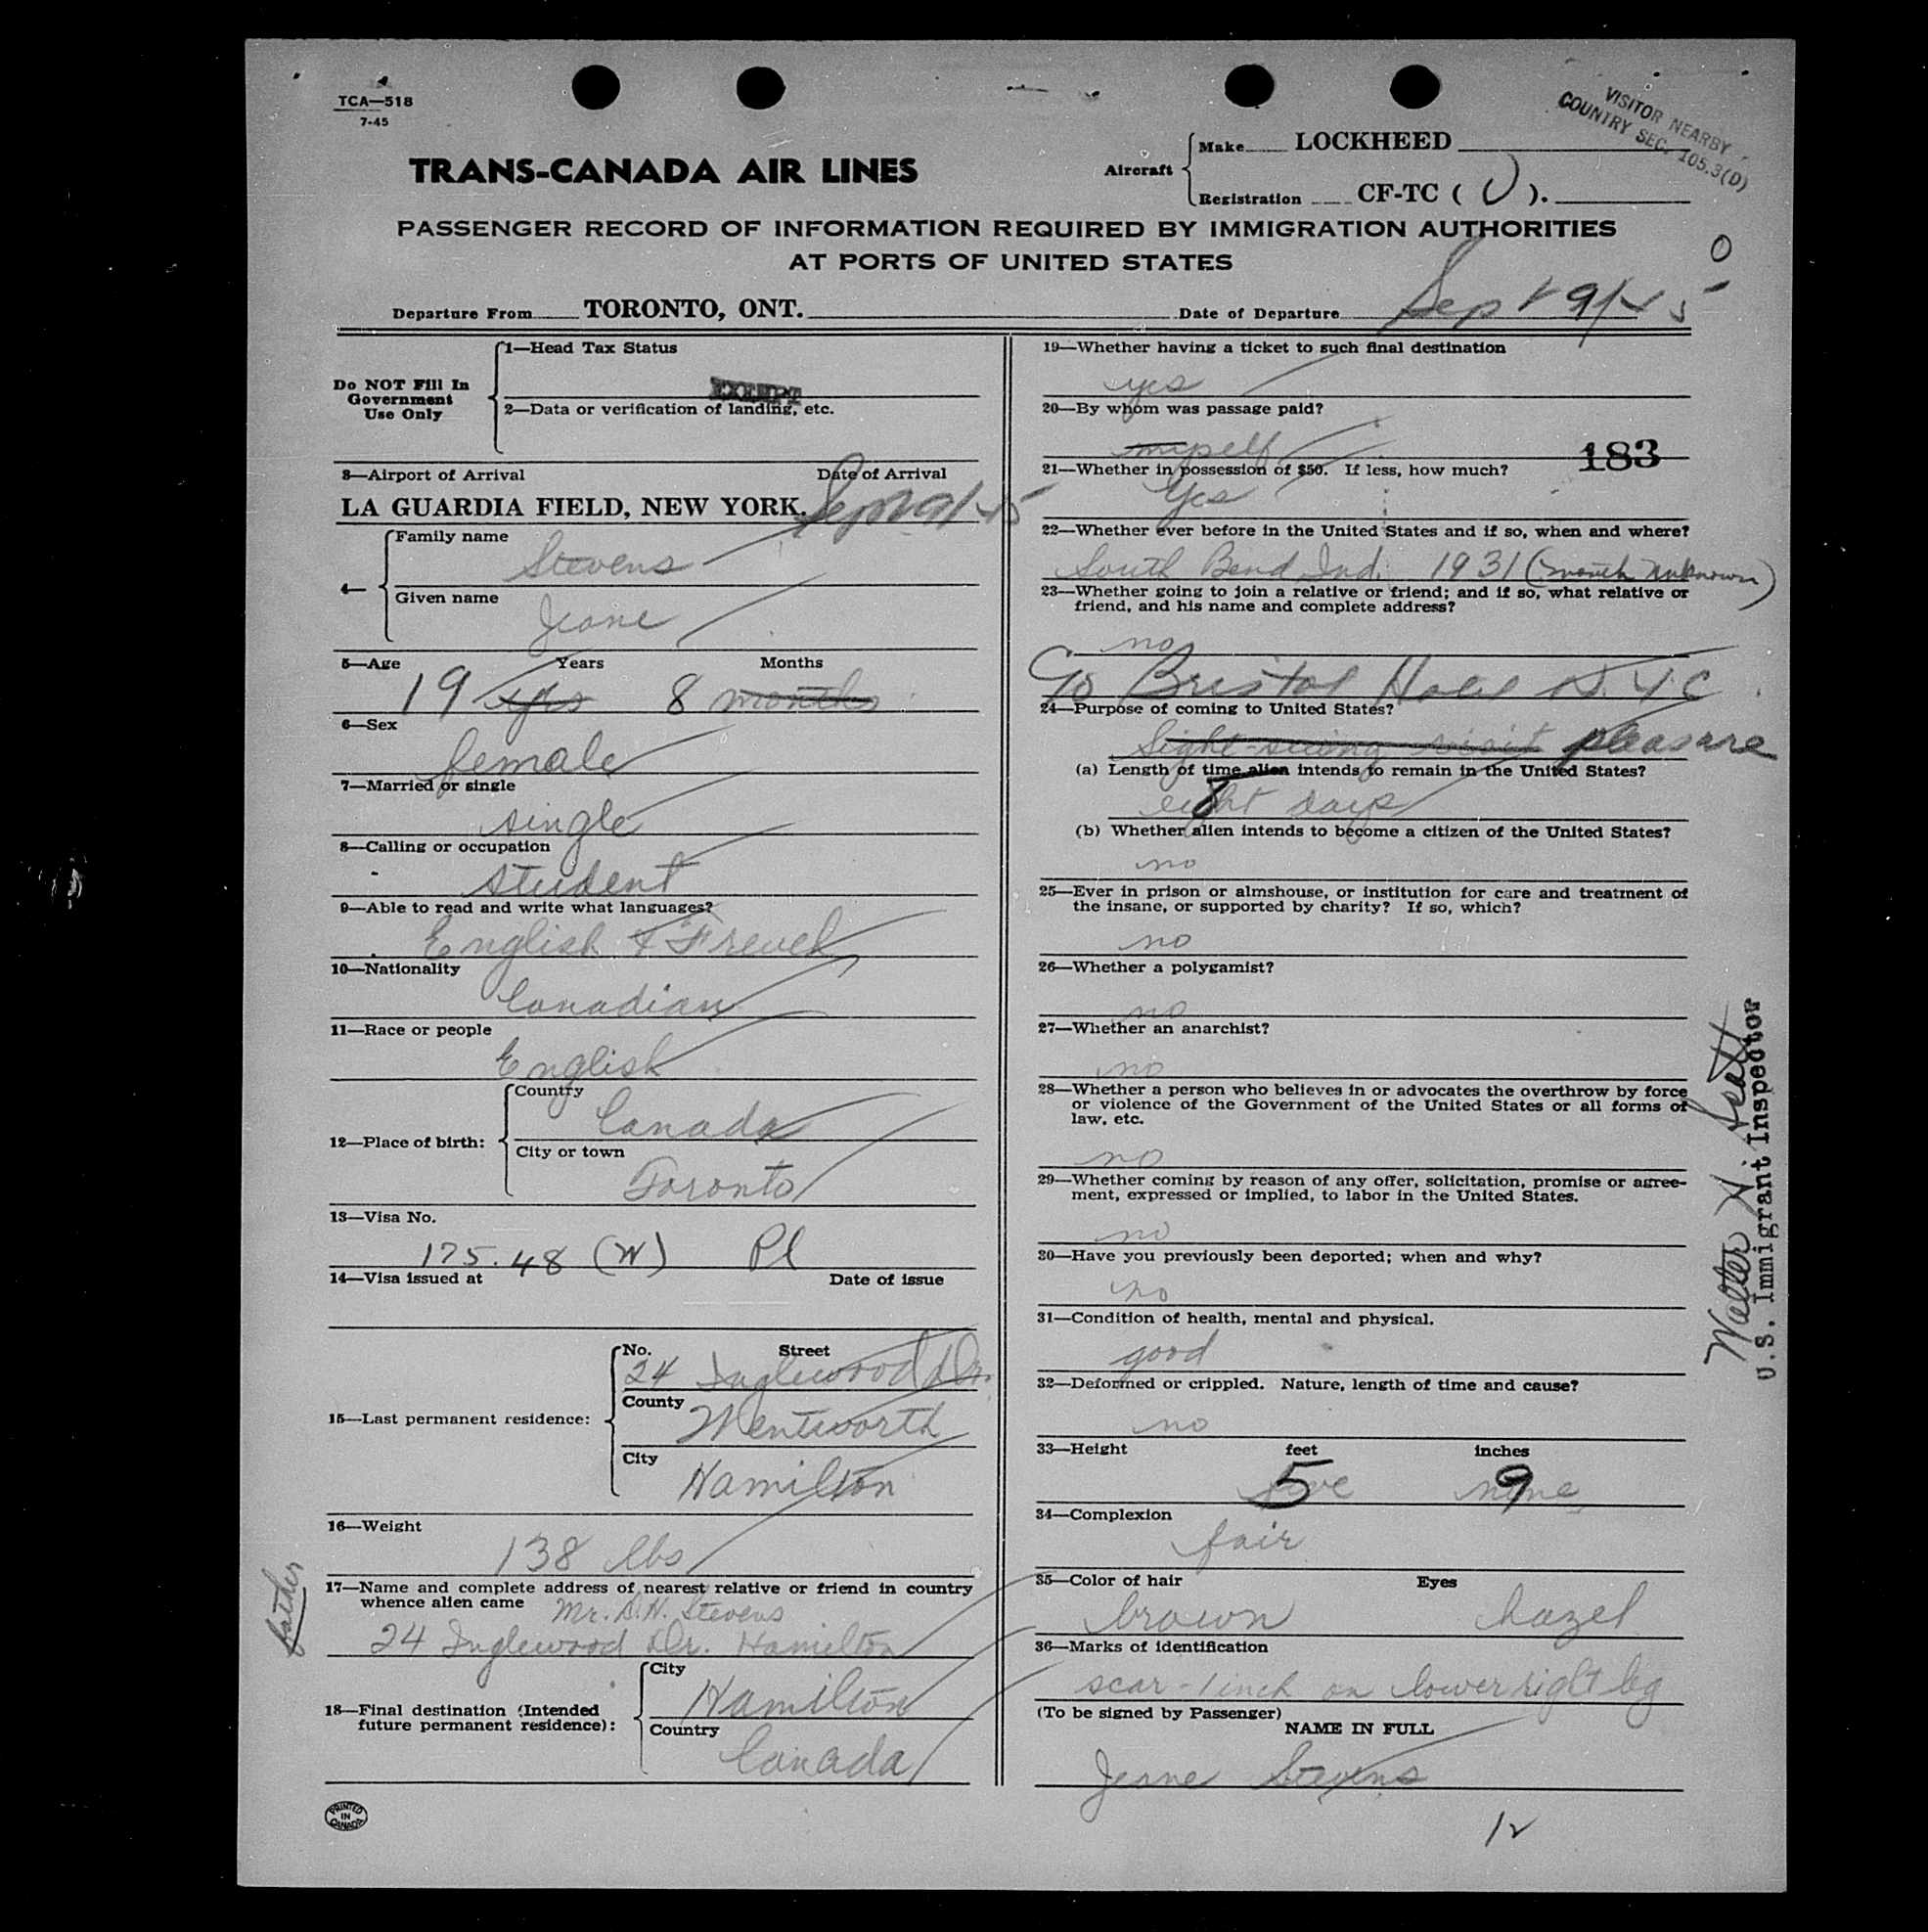 TCA—518
7-45
VISITOR NEARBY
COUNTRY SEC. 105.3(D)
TRANS-CANADA AIR LINES
Aircraft
Make LOCKHEED
Registration CF-TC ( U ).
PASSENGER RECORD OF INFORMATION REQUIRED BY IMMIGRATION AUTHORITIES
AT PORTS OF UNITED STATES
0
Departure From TORONTO, ONT. Date of Departure Sept 9/45
Do NOT Fill In
Government
Use Only
1—Head Tax Status
EXEMPT
2—Data or verification of landing, etc.
3—Airport of Arrival Date of Arrival
LA GUARDIA FIELD, NEW YORK. Sept 9/45
4—
Family name
Stevens
Given name
Jeane
5—Age Years Months
19 yrs 8 months
6—Sex
female
7—Married or single
single
8—Calling or occupation
student
9—Able to read and write what languages?
English & French
10—Nationality
Canadian
11—Race or people
English
12—Place of birth:
Country
Canada
City or town
Toronto
13—Visa No.
175.48 (W) Pl
14—Visa issued at Date of issue
15—Last permanent residence:
No. Street
24 Inglewood Dr.
County
Wentworth
City
Hamilton
16—Weight
138 lbs
father
17—Name and complete address of nearest relative or friend in country
whence alien came Mr. D.H. Stevens
24 Inglewood Dr. Hamilton
18—Final destination (Intended
future permanent residence):
City
Hamilton
Country
Canada
PRINTED
IN
CANADA
19—Whether having a ticket to such final destination
yes
20—By whom was passage paid?
myself
183
21—Whether in possession of $50. If less, how much?
Yes
22—Whether ever before in the United States and if so, when and where?
South Bend Ind. 1931 (month unknown)
23—Whether going to join a relative or friend; and if so, what relative or
friend, and his name and complete address?
no
Bristol Hotel N.Y.C.
24—Purpose of coming to United States?
Sight-seeing visit pleasure
(a) Length of time alien intends to remain in the United States?
eight days 8
(b) Whether alien intends to become a citizen of the United States?
no
25—Ever in prison or almshouse, or institution for care and treatment of
the insane, or supported by charity? If so, which?
no
26—Whether a polygamist?
no
27—Whether an anarchist?
no
28—Whether a person who believes in or advocates the overthrow by force
or violence of the Government of the United States or all forms of
law, etc.
no
29—Whether coming by reason of any offer, solicitation, promise or agree-
ment, expressed or implied, to labor in the United States.
no
30—Have you previously been deported; when and why?
no
31—Condition of health, mental and physical.
good
32—Deformed or crippled. Nature, length of time and cause?
no
33—Height feet inches
five 5 nine 9
34—Complexion
fair
35—Color of hair Eyes
brown hazel
36—Marks of identification
scar - 1 inch on lower right leg
(To be signed by Passenger)
NAME IN FULL
Jeane Stevens
12
Walter
U.S. Immigrant Inspector